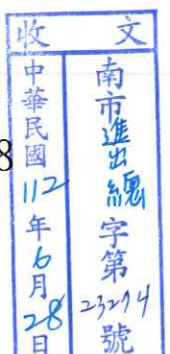 收文
南市進出總字第23294號
中華民國112年6月28日
8